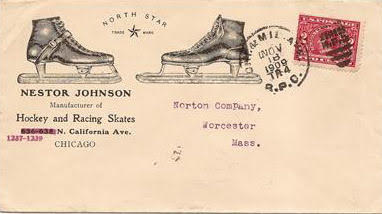 NORTH STAR
TRADE MARK
NESTOR JOHNSON
Manufacturer of
Hockey and Racing Skates
636-638 N. California Ave.
1237-1239
CHICAGO
NOV
18
1909
TR4
R.P.O.
U.S. POSTAGE
2
2
Norton Company,
Worcester
Mass.